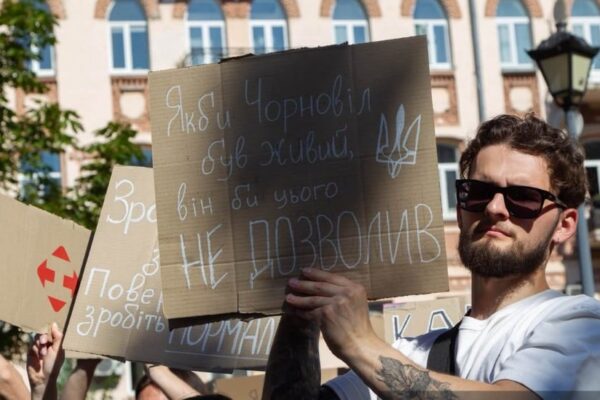 Якби Чорновіл
був живий,
він би цього
НЕ ДОЗВОЛИВ
Зро
з
Пове
зробіть НОРМАЛ
КА